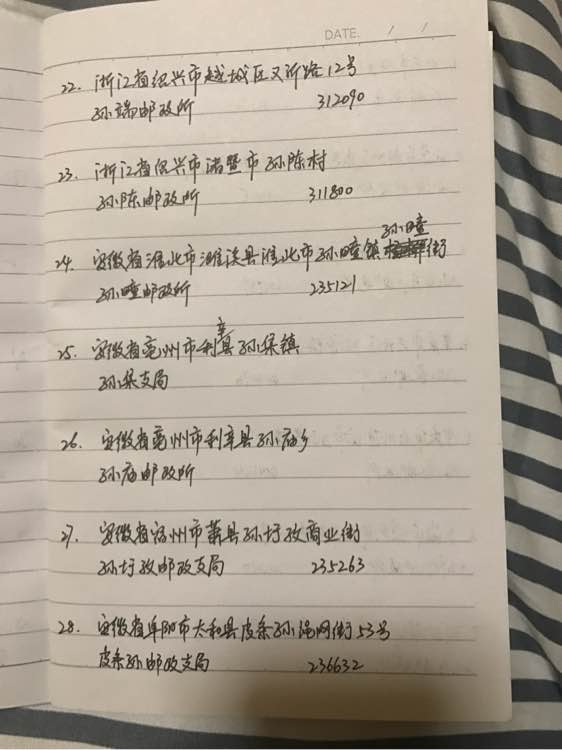 DATE. / /
22. 浙江省绍兴市越城区又新路12号
孙端邮政所 312090
23. 浙江省绍兴市诸暨市孙陈村
孙陈邮政所 311800
24. 安徽省淮北市濉溪县淮北市孙疃镇孙疃街
孙疃邮政所 235121
25. 安徽省亳州市利辛县孙集镇
孙集支局
26. 安徽省亳州市利辛县孙庙乡
孙庙邮政所
27. 安徽省宿州市萧县孙圩孜商业街
孙圩孜邮政支局 235263
28. 安徽省阜阳市太和县皮条孙渔网街53号
皮条孙邮政支局 236632